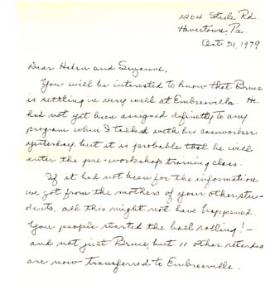 Steele Rd
Havertown, Pa.
Oct. 31, 1979
Dear Helen and Suzanne,
You will be interested to know that Bruce
is settling in very well at Embreeville. He
had not yet been assigned definitely to any
program when I talked with his caseworker
yesterday but it is probable that he will
enter the pre-workshop training class.
If it had not been for the information
we got from the mothers of your other stu-
dents, all this might not have happened.
You people started the ball rolling! -
and not just Bruce, but 11 other retarded
are now transferred to Embreeville.